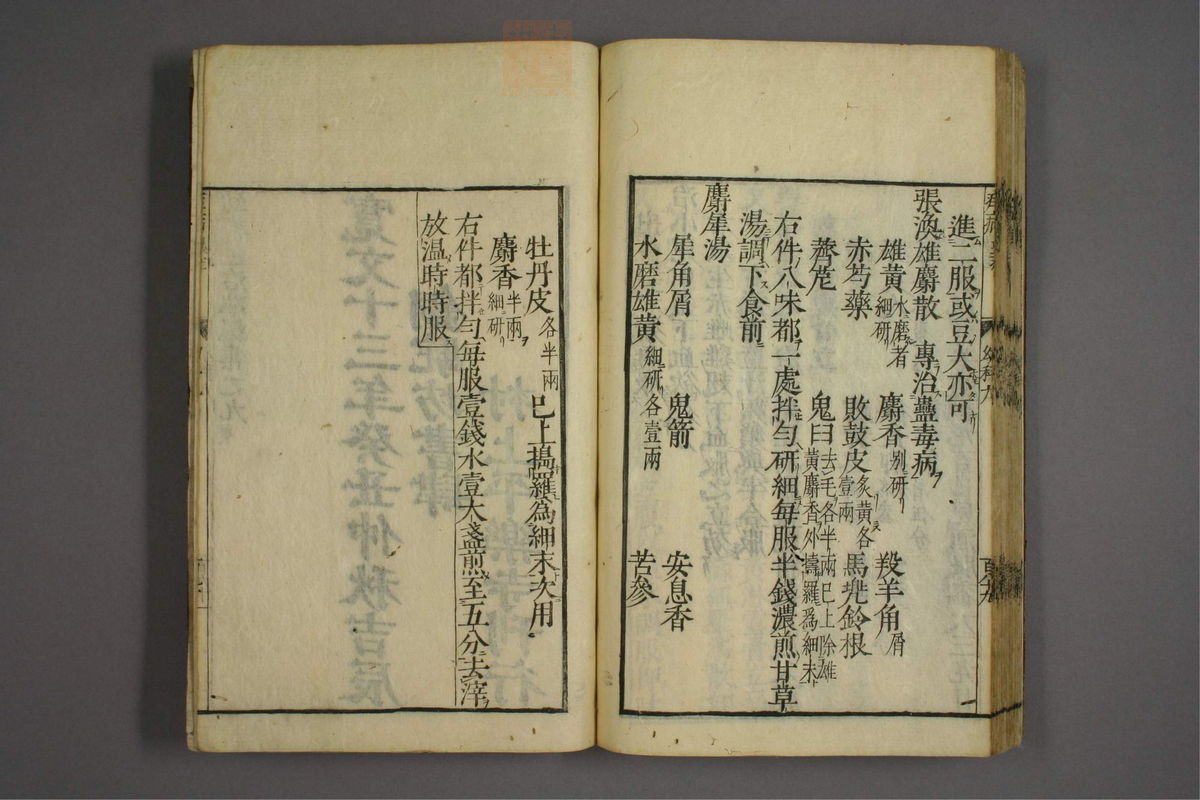 進二服或豆大亦可
張渙雄麝散　專治蠱毒病
雄黄水磨者細研　麝香别研　羖羊角屑
赤芍藥　敗鼓皮炙黄各壹兩　馬兠鈴根
薺苨　鬼臼去毛各半兩巳上除雄黄麝香外擣羅爲細末
右件八味都一處拌勻研細每服半錢濃煎甘草
湯調下食前
麝犀湯
犀角屑　鬼箭　安息香
水磨雄黄細研各壹兩　苦參
牡丹皮各半兩巳上擣羅為細末次用
麝香半兩細研
右件都拌勻每服壹錢水壹大盞煎至五分去滓
放温時時服